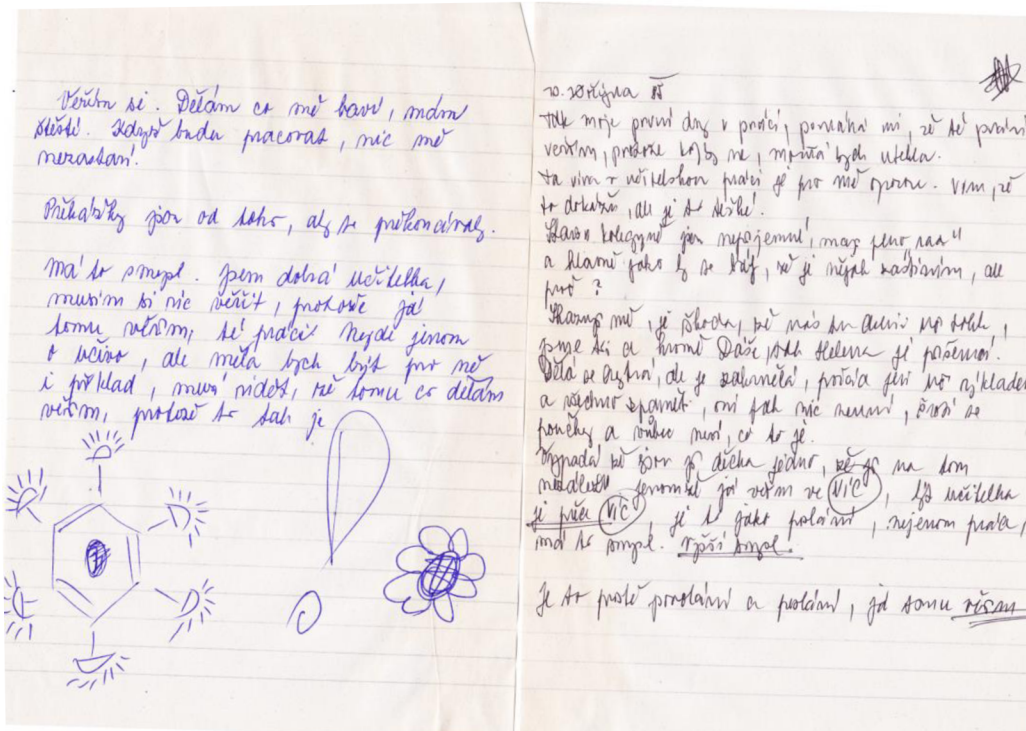 Věřím si. Dělám co mě baví, mám
štěstí. Když budu pracovat, nic mě
nezastaví.
Překážky jsou od toho, aby se překonávaly.
Má to smysl. Jsem dobrá učitelka,
musím si víc věřit, protože já
tomu věřím, té práci. Nejde jenom
o učivo, ale měla bych být pro ně
i příklad, musí vidět, že tomu co dělám
věřím, protože to tak je
10. září
Tak moje první dny v práci, pomáhá mi, že té práci
věřím, protože kdyby ne, možná bych utekla.
Ta víra v učitelskou práci je pro mě oporou. Vím, že
to dokážu, ale je to těžké.
kolegyně jsou nepříjemné, mají plno
a hlavně jako by se bály, že je nějak zastíním, ale
proč?
mě, je škoda, že nás tu
jsme tři a kromě Daši, tak Helena je příšerná.
Dělá se chytrá, ale je
a všechno zpaměti, oni pak nic neumí, se
poučky a vůbec neví, co to je.
Vypadá že jsou jí děcka jedno, na tom
nezáleží jenomže já věřím ve VÍC, být učitelka
je přece VÍC, je to jako poslání, nejenom práce,
má to smysl. Vyšší smysl.
Je to prostě povolání a poslání, já tomu věřím